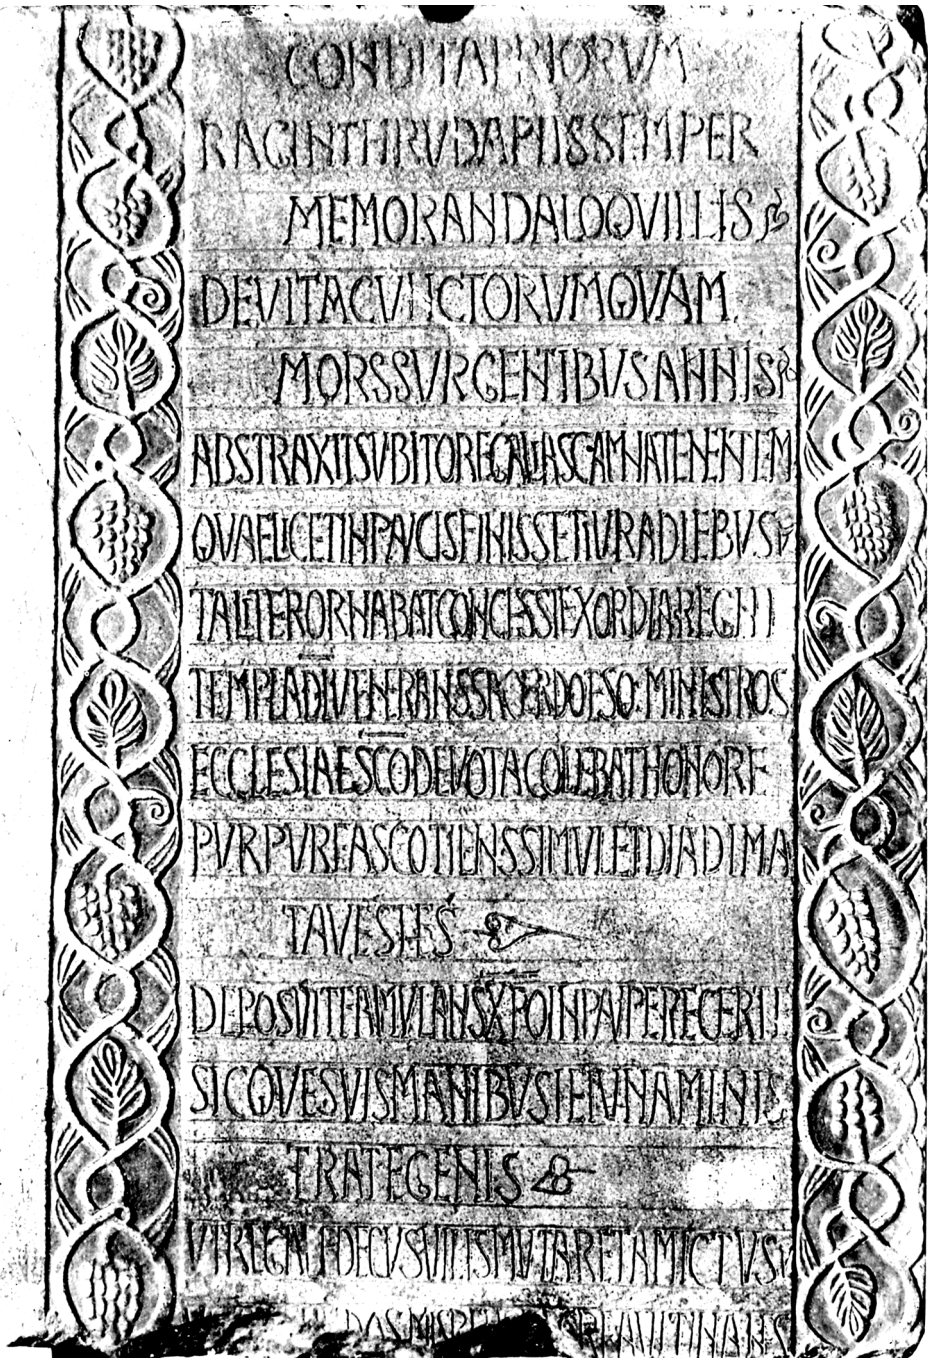 CONDITA PRIORVM
RAGINTHRVDA PIIS SEMPER
MEMORANDA LOQVILLIS
DE VITA CVNCTORVM QVAM
MORS SVRGENTIBVS ANNIS
ABSTRAXIT SVBITO REGALIA SCAMNA TENENTEM
QVAE LICET IN PACIS FINISSET IVRA DIEBVS
TALITER ORNABAT CONCESSI EXORDIA REGNI
TEMPLA DI VENERANS SACERDOTES Q: MINISTROS
ECCLESIAE SCO DEVOTA COLEBAT HONORE
PVRPVREAS COTIENS SIMVL ET DIADIMA
TA VESTES
DEPOSVIT FAMVLANS XPO IN PAVPERE CERNI
SICQVE SVIS MANIBVS IEIVNA MINIS
TRAT EGENIS
VT REGALE DECVS VILIS MVTARET AMICTVS